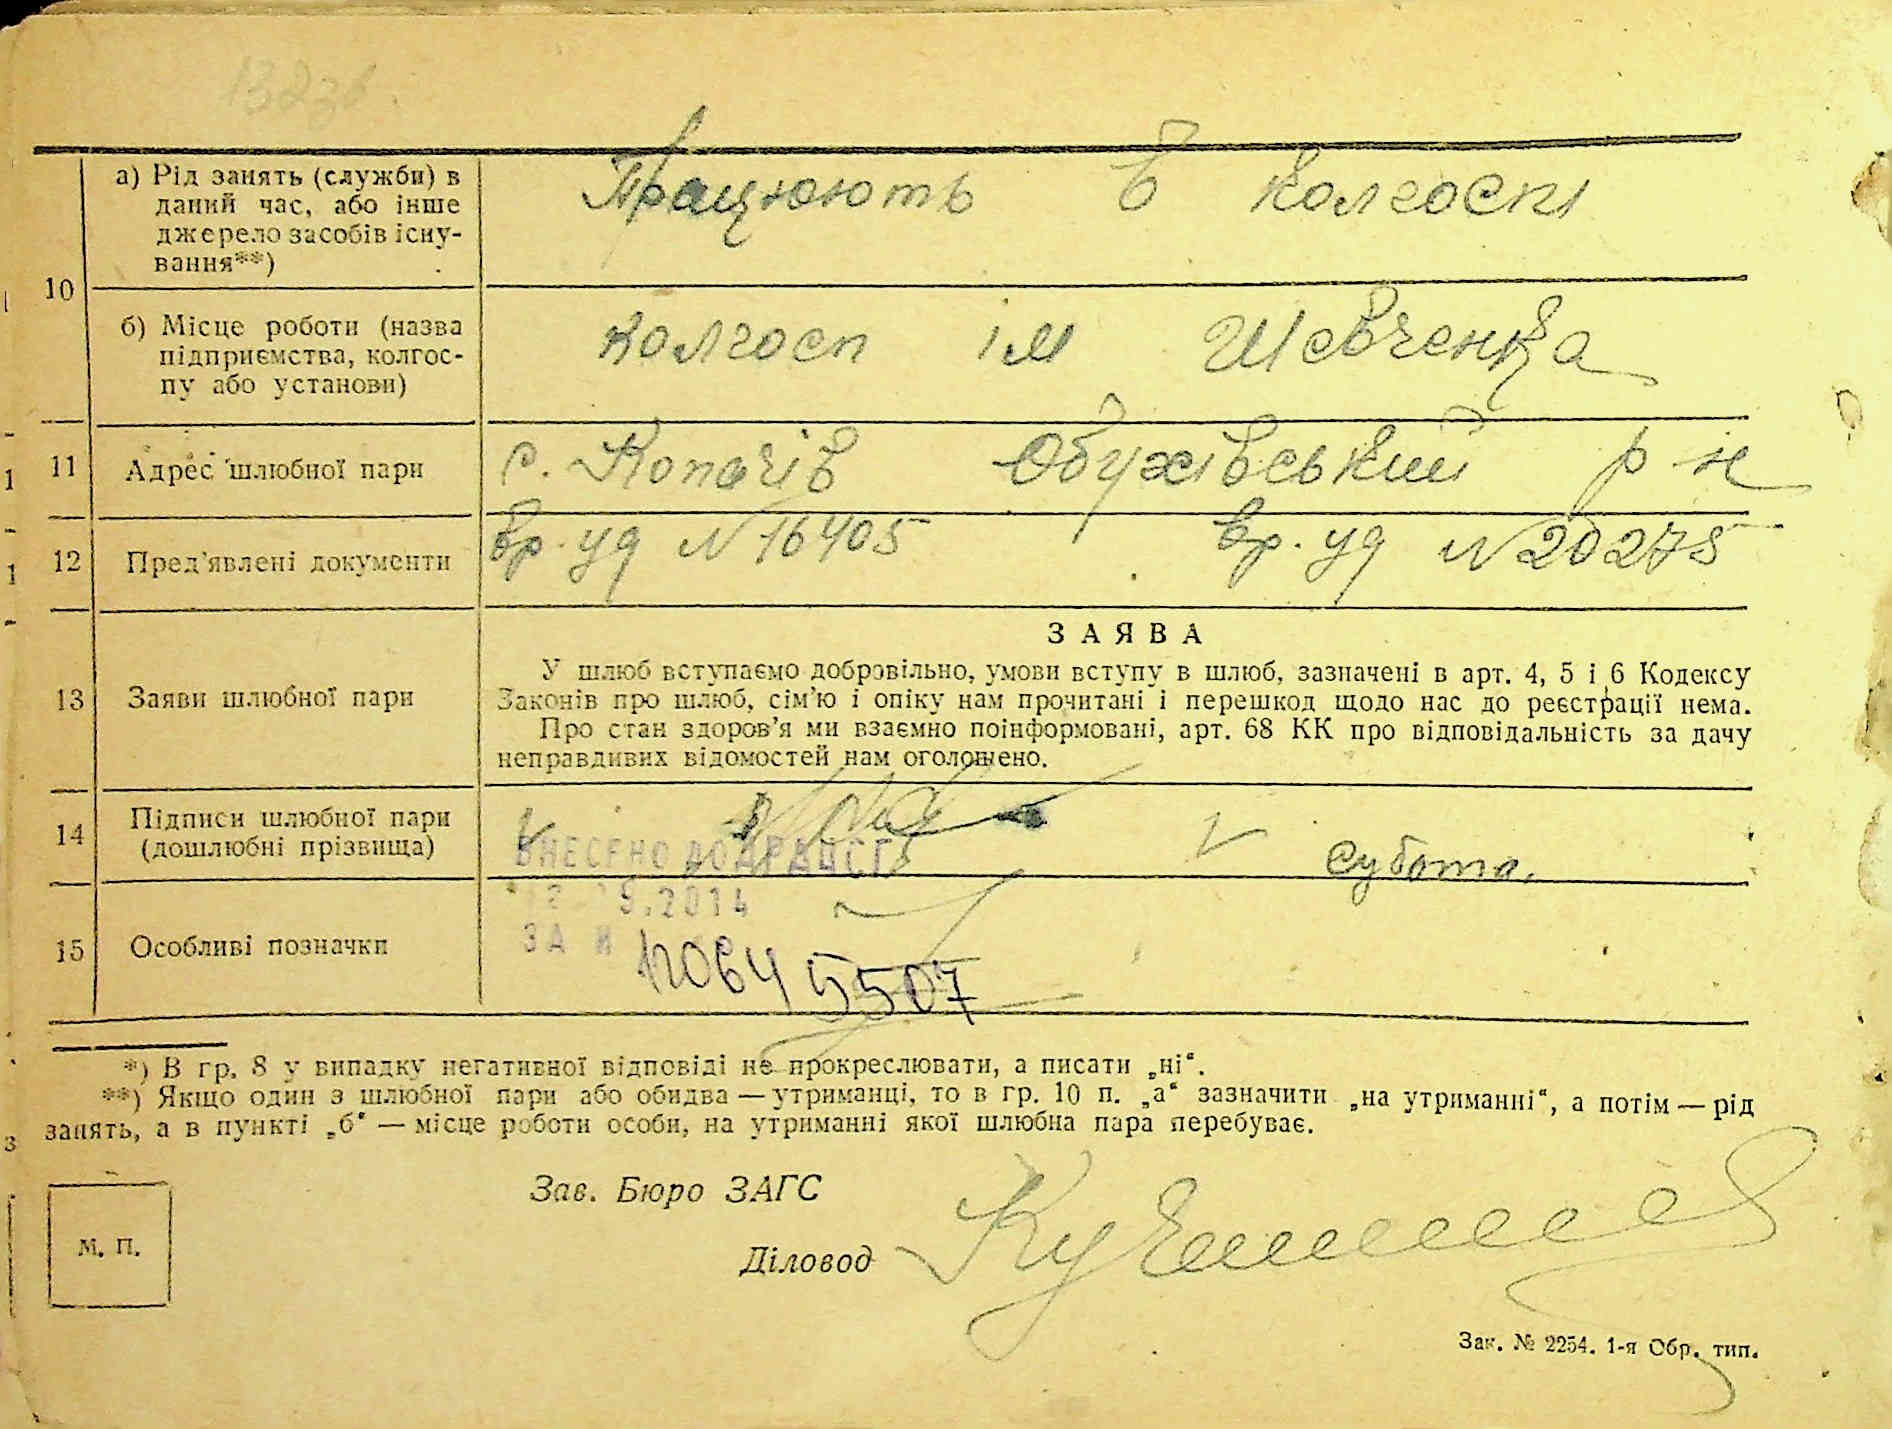 а) Рід занять (служби) в
даний час, або інше
джерело засобів існу-
вання**)
Працюють в колгоспі
10
б) Місце роботи (назва
підприємства, колгос-
пу або установи)
колгосп ім Шевченка
11 Адрес шлюбної пари с. Копачів Обухівський р-н
12 Пред'явлені документи вр. уд N 16405 вр. уд N 20275
ЗАЯВА
13 Заяви шлюбної пари
У шлюб вступаємо добровільно, умови вступу в шлюб, зазначені в арт. 4, 5 і 6 Кодексу
Законів про шлюб, сім'ю і опіку нам прочитані і перешкод щодо нас до реєстрації нема.
Про стан здоров'я ми взаємно поінформовані, арт. 68 КК про відповідальність за дачу
неправдивих відомостей нам оголошено.
14 Підписи шлюбної пари
(дошлюбні прізвища)
Субота.
ВНЕСЕНО ДО ДРАЦСГ
9.2014
15 Особливі позначки
ЗА N 12064 5507
*) В гр. 8 у випадку негативної відповіді не прокреслювати, а писати „ні“.
**) Якщо один з шлюбної пари або обидва — утриманці, то в гр. 10 п. „а“ зазначити „на утриманні“, а потім — рід
занять, а в пункті „б“ — місце роботи особи, на утриманні якої шлюбна пара перебуває.
Зав. Бюро ЗАГС
М. П.
Діловод
Зак. № 2254. 1-я Обр. тип.